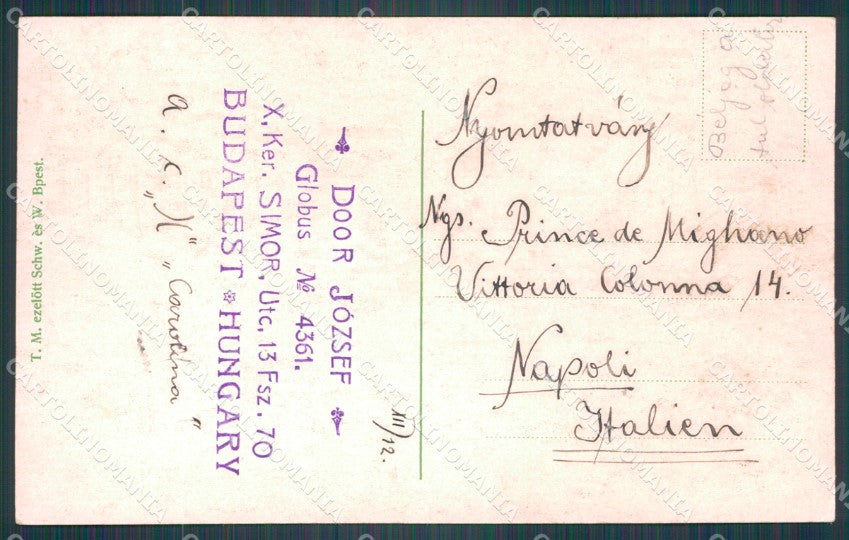 Bélyeg a
túloldalon
Nyomtatvány
Ngs. Prince de Mighano
Vittoria Colonna 14.
Napoli
Italien
XII/12.
DOOR JÓZSEF
Globus № 4361.
X, Ker. SIMOR, Utc, 13 Fsz. 70
BUDAPEST * HUNGARY
a. c. "N" "Carolina"
T. M. ezelőtt Schw. és W. Bpest.
CARTOLINOMANIA